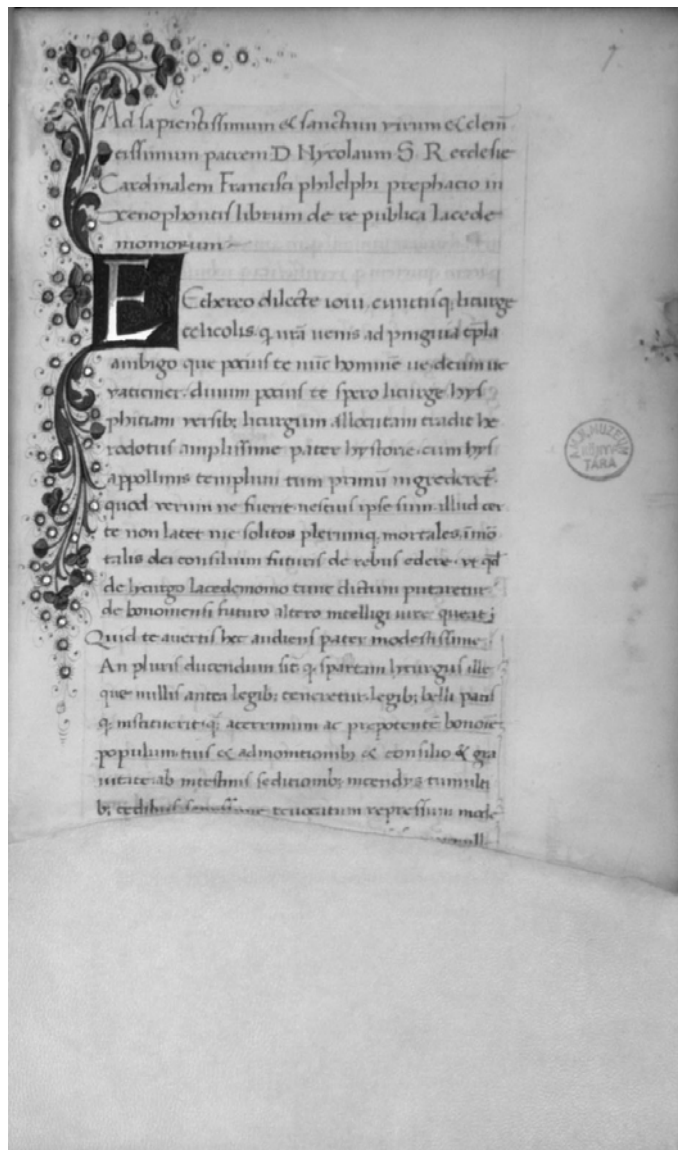 7
Ad sapientissimum & sanctum virum & clem̄
tissimum patrem D Nycolaum S R ecclesie
Cardinalem Francisci philelphi prephatio in
xenophontis librum de re publica lacede
moniorum
E Ethereo dilecte ioui, cunctisq, licurge
celicolis q, urā uenis ad pinguia tēpla
ambigo que potius te nūc hominē ue deum ue
vaticiner. diuum potius te spero licurge hys
phitiam versib; licurgum allocutam tradit he
rodotus amplissime pater hystorie. cum hys
appollinis templum tum primū ingrederet̄.
quod verum ne fuerit nescius ipse sum. illud cer
te non latet me solitos plerunq, mortales, īmō
talis dei consilium futuris de rebus edere. vt qd̄
de licurgo lacedemonio tunc dictum putaretur
de bononiensi futuro altero intelligi iure queat;
Quid te auertis hec audiens pater modestissime,
An pluris ducendum sit q, spartam lycurgus ille
que nullis antea legib; teneretur. legib; belli pacis
q, instituerit. q, acerrimum ac prepotentē bonoīe
populum. tuis & admonitionib; & consilio & gra
uitate. ab intestinis seditionib; incendys tumulti
b; cedibus reuocatum repressum mode
A.M.N. MUZEUM
KÖNYV
TÁRA